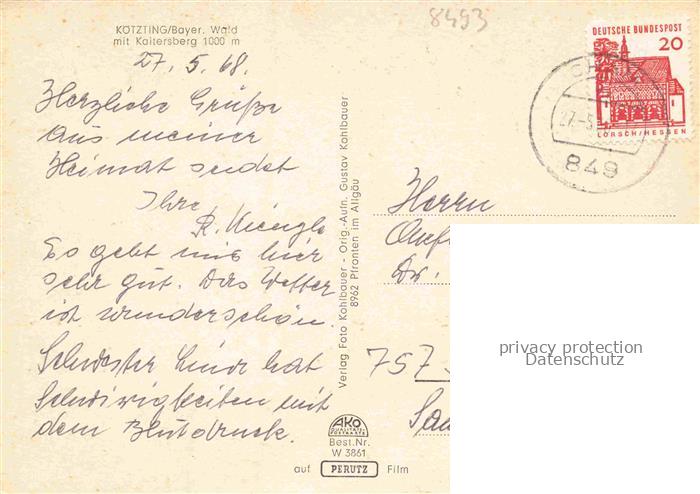 KÖTZTING/Bayer. Wald
mit Kaitersberg 1000 m
8493
27. 5. 68.
Herzliche Grüße
aus meiner
Heimat sendet
Ihre
Es geht mir hier
sehr gut. Das Wetter
ist wunderschön.
Schwester Linde hat
Schwirigkeiten mit
dem Blutdruck.
Verlag Foto Kohlbauer - Orig.-Aufn. Gustav Kohlbauer
8962 Pfronten im Allgäu
DEUTSCHE BUNDESPOST
20
LORSCH/HESSEN
849
Herrn
Dr.
757
privacy protection
Datenschutz
AKO
QUALITÄTS-
POSTKARTE
Best.Nr.
W 3861
auf PERUTZ Film